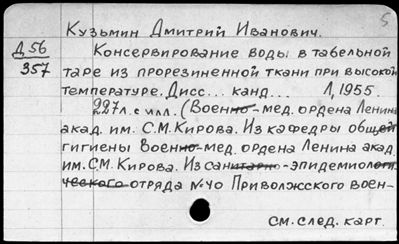 5
Кузьмин Дмитрий Иванович.
Д 56
357
Консервирование воды в табельной
таре из прорезиненной ткани при высокой
температуре. Дисс... канд... Л, 1955.
227л. с илл. (Военно-мед. ордена Ленина
акад. им. С.М. Кирова. Из кафедры общей
гигиены Военно-мед. ордена Ленина акад.
им. С.М. Кирова. Из санитарно-эпидемиологи-
ческого отряда №40 Приволжского воен-
см. след. карт.